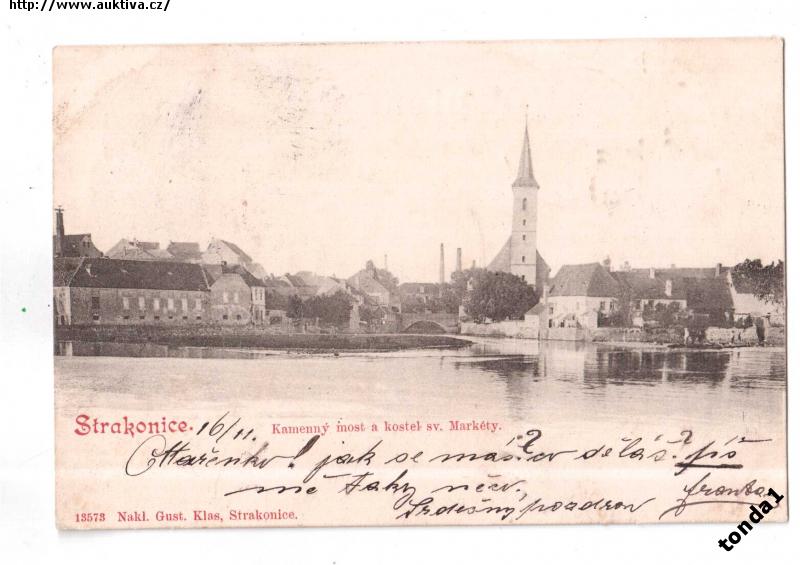 http://www.auktiva.cz/
Strakonice. 16/11.
Kamenný most a kostel sv. Markéty.
Mařenko! jak se máš? co děláš? piš
mě taky něco.
Srdečný pozdrav
13573 Nakl. Gust. Klas, Strakonice.
tonda1